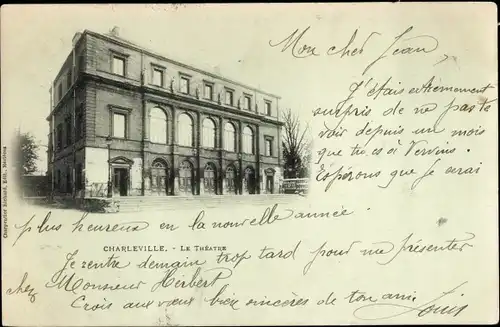 Mon cher Jean
J'étais extrêmement
surpris de ne pas te
voir depuis un mois
que tu es à Vervins.
Espérons que je serai
plus heureux en la nouvelle année.
CHARLEVILLE. - LE THÉATRE
Je rentre demain trop tard pour me présenter
chez Monsieur Herbert
Crois aux vœux bien sincères de ton ami Louis